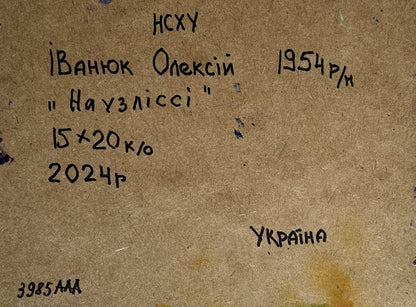 НСХУ
Іванюк Олексій 1954р/н
"На узліссі"
15×20 к/о
2024р
Україна
3985АДД